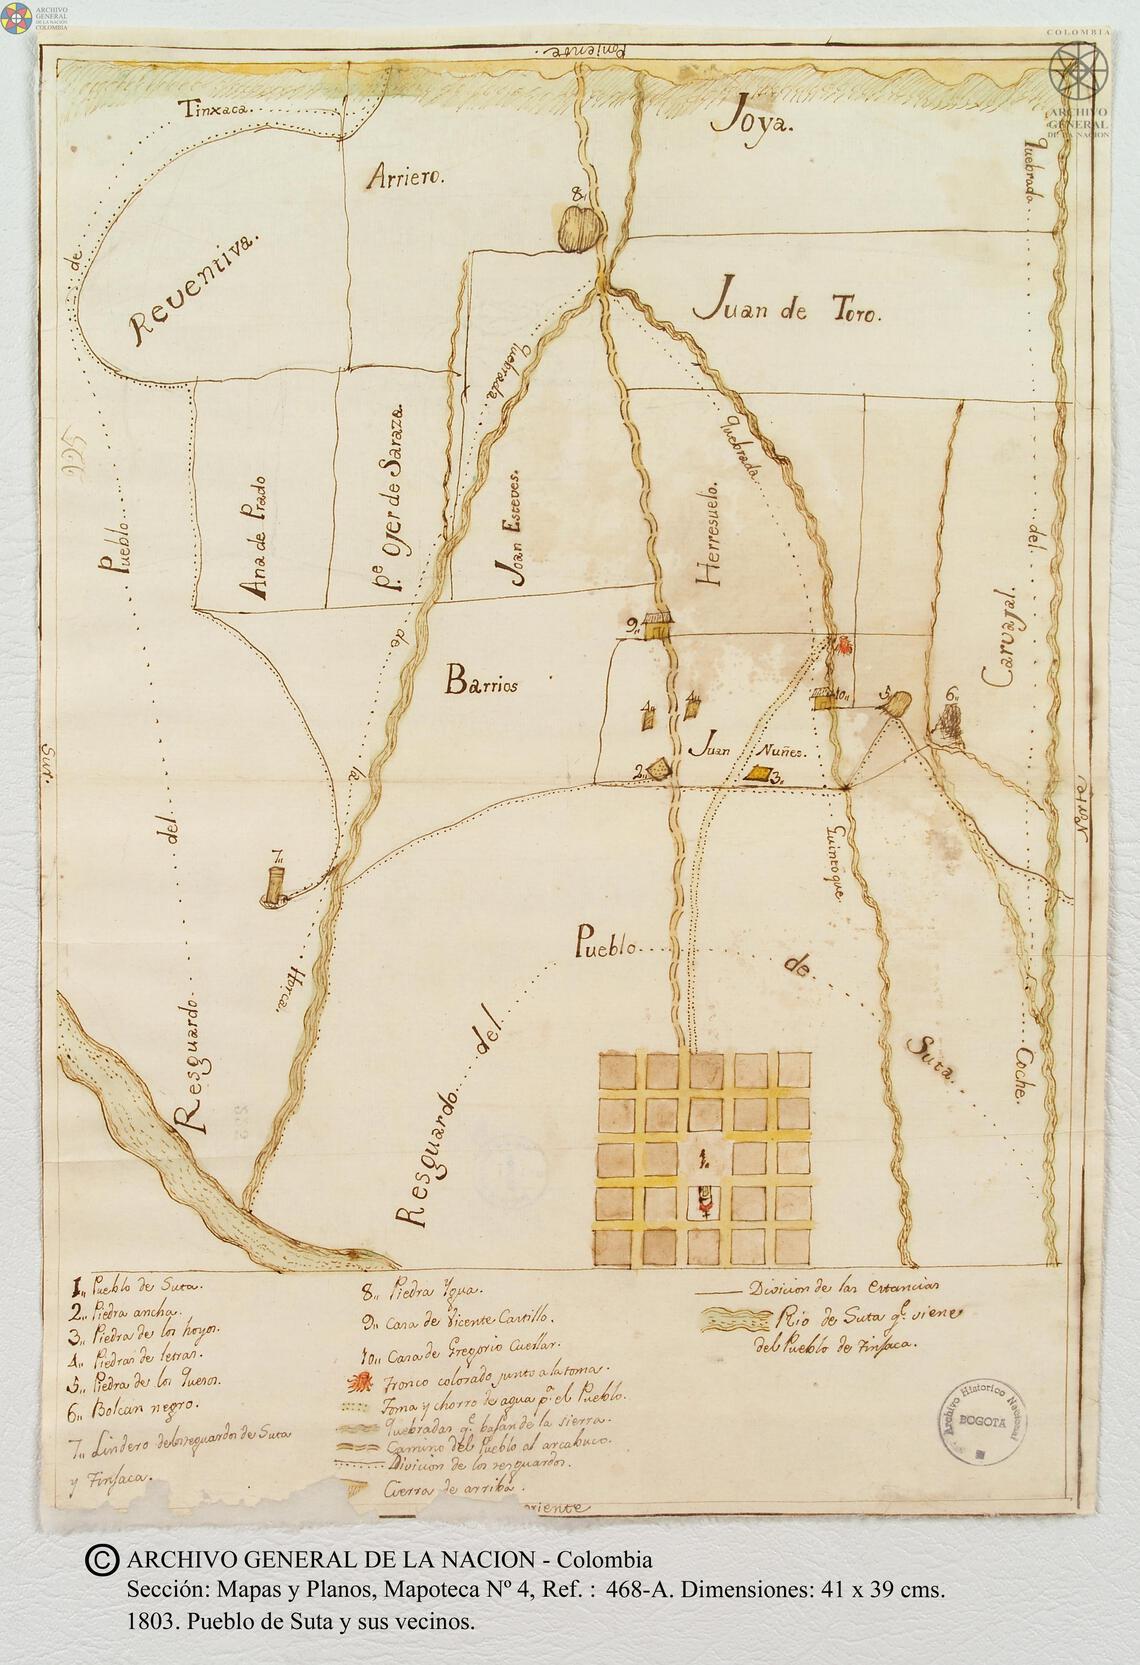 ARCHIVO
GENERAL
DE LA NACIÓN
COLOMBIA
COLOMBIA
ARCHIVO
GENERAL
DE LA NACION
Poniente
Tinxaca
Joya.
Arriero.
Quebrada
8,,
de
Reventiva.
Juan de Toro.
Quebrada
Quebrada
566
Pueblo
Ana de Prado
Pe. Ojer de Saraza.
Joan Esteves.
Herresuelo.
del
Carvajal
de
9,,
Barrios
10,,
5,,
6,,
4,,
4,,
Juan Nuñes.
Sur.
la
2,,
3,,
Norte
del
7,,
Guintoque
Pueblo
de
Horca.
Resguardo
del
Suta
Coche.
Resguardo
1,,
1,, Pueblo de Suta.
2,, Piedra ancha.
3,, Piedra de los hoyos.
4,, Piedras de letras.
5,, Piedra de los Quesos.
6,, Bolcan negro.
7,, Lindero de los resguardos de Suta
y Tinjaca.
8,, Piedra Ygua.
9,, Casa de Vicente Castillo.
10,, Casa de Gregorio Cuellar.
Tronco colorado junto a la toma.
Toma y chorro de agua pa. el Pueblo.
Quebradas qe. bajan de la sierra.
Camino del Pueblo al arcabuco.
Division de los resguardos.
Cierra de arriba.
Division de las estancias
Rio de Suta qe. viene
del Pueblo de Tinjaca.
Archivo Historico Nacional
BOGOTA
oriente
© ARCHIVO GENERAL DE LA NACION - Colombia
Sección: Mapas y Planos, Mapoteca Nº 4, Ref. : 468-A. Dimensiones: 41 x 39 cms.
1803. Pueblo de Suta y sus vecinos.